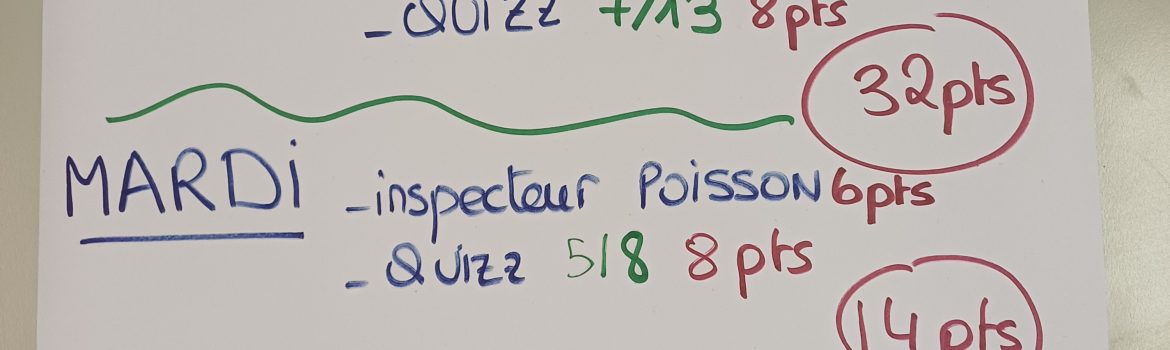 _ QUIZZ 7/13 8pts
32pts
MARDi _inspecteur POISSON 6pts
_ QUIZZ 5/8 8 pts
14 pts